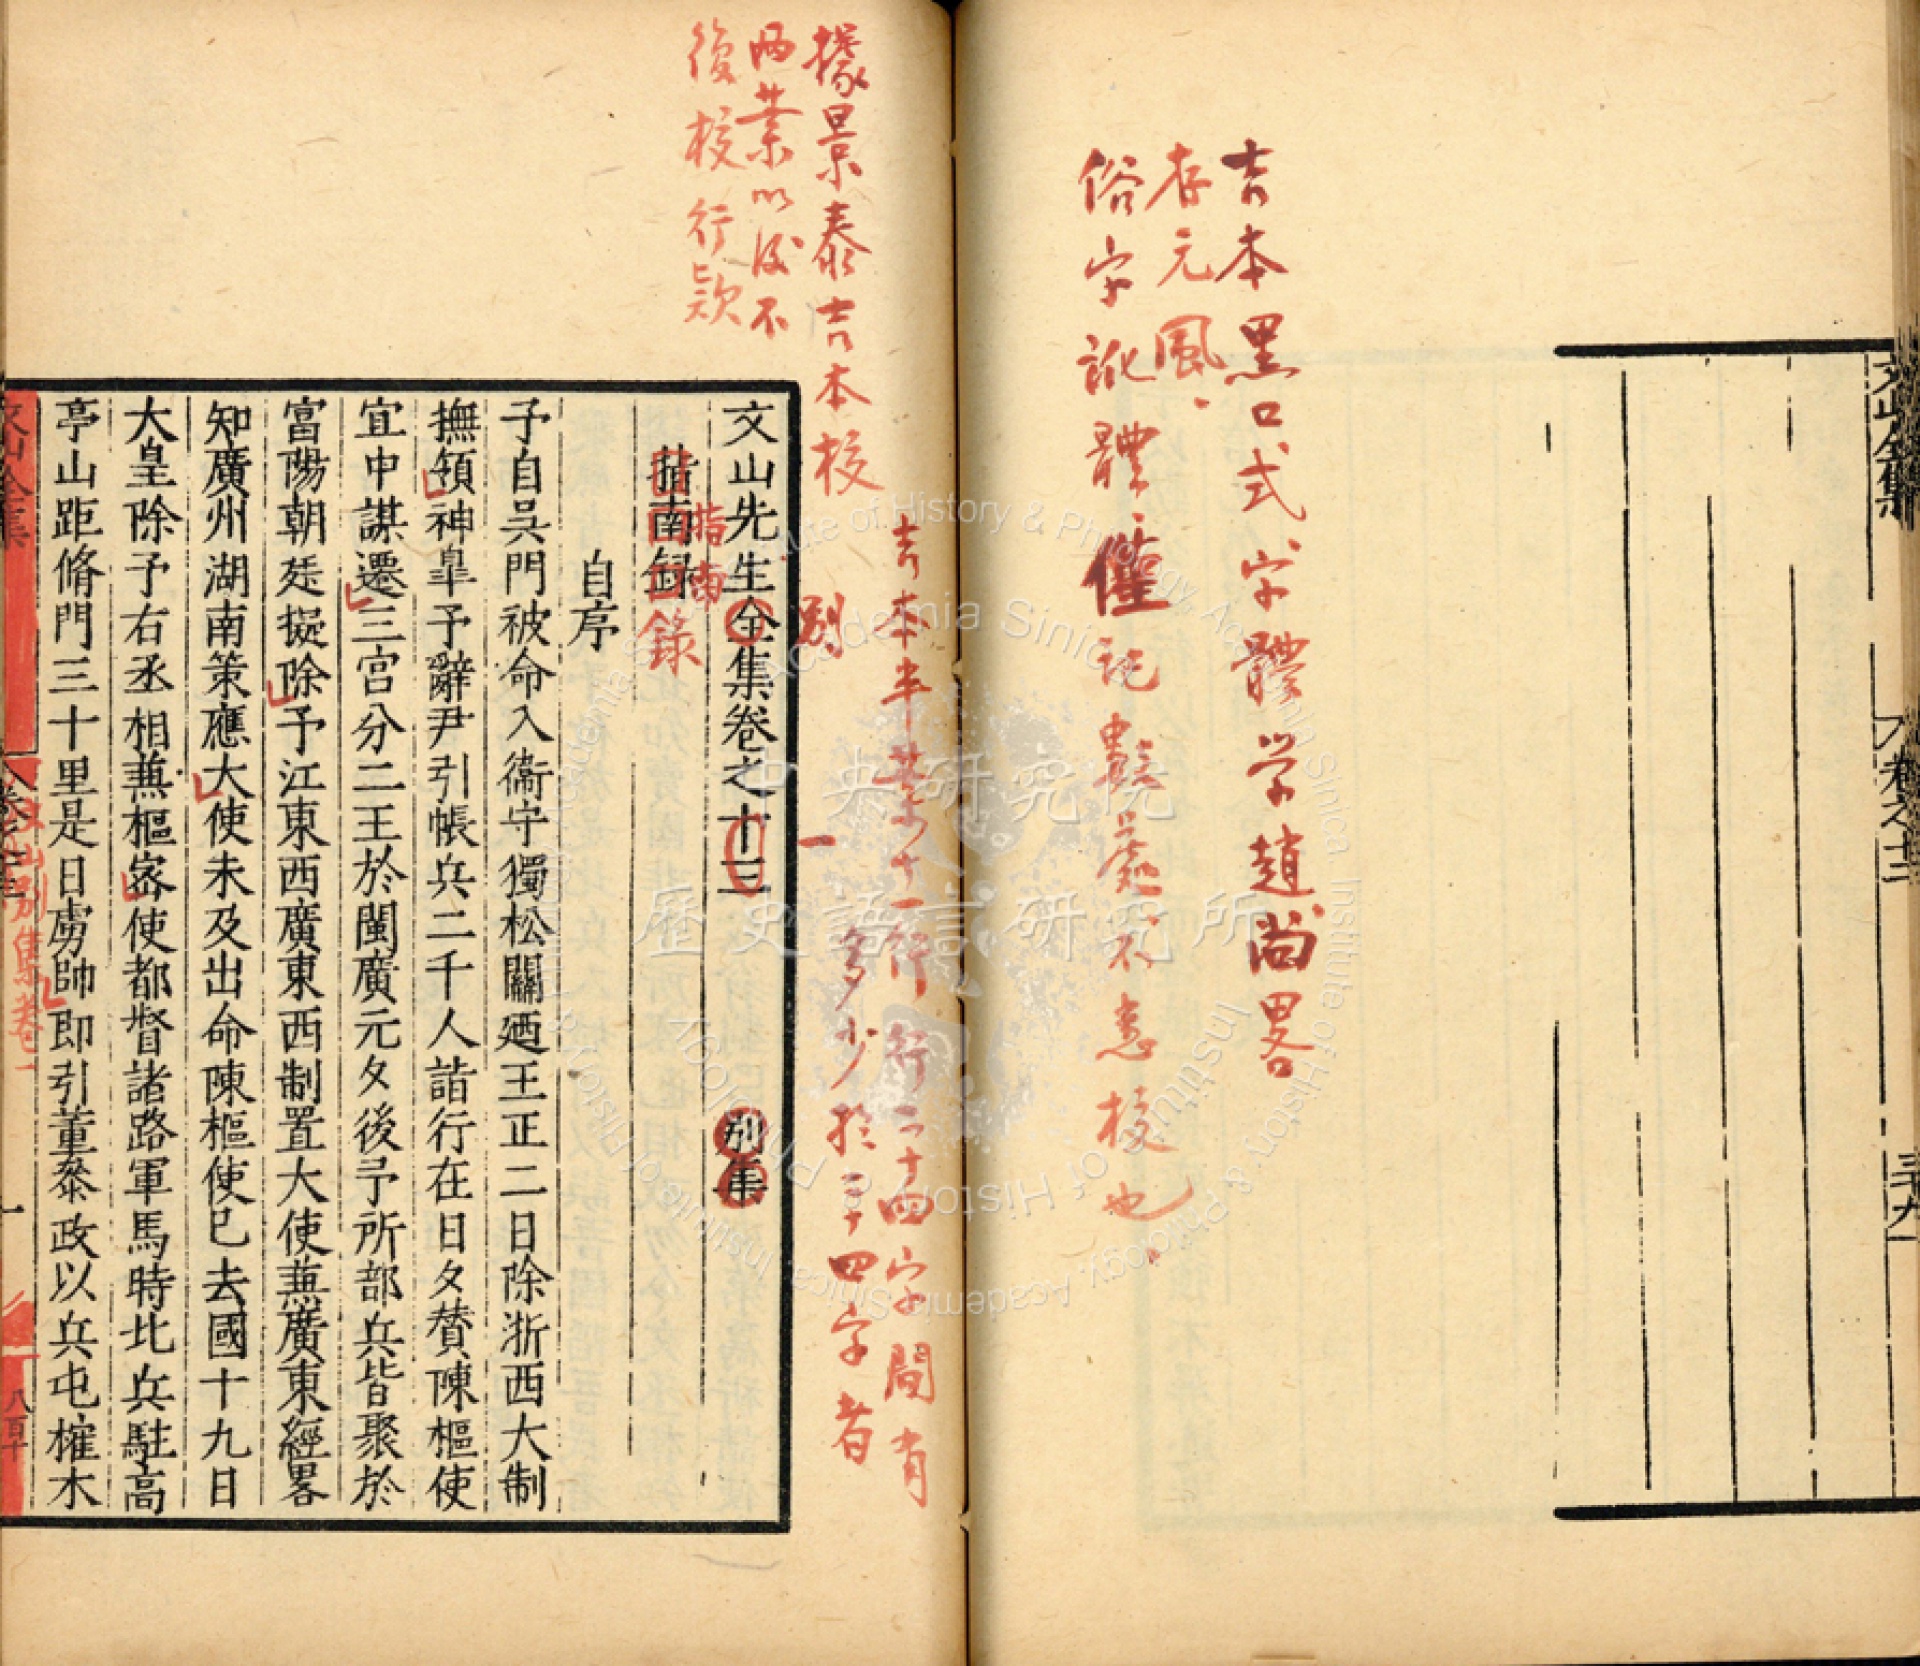 吉本黑口式字體學趙尚畧
存元風
俗字訛體僅記數處不悉校也
文山全集
卷之十二
吉本半葉十一行行二十四字間有
多少於二十四字者
據景泰吉本校
兩葉以後不
後校行款
別
一
文山先生全集卷之十三
別集
指南錄
指南
錄
自序
予自吳門被命入衞守獨松關廼王正二日除浙西大制
撫領神臯予辭尹引帳兵二千人詣行在日夕賛陳樞使
宜中謀遷三宮分二王於閩廣元夕後予所部兵皆聚於
富陽朝廷擬除予江東西廣東西制置大使蕪廣東經畧
知廣州湖南策應大使未及出命陳樞使已去國十九日
大皇除予右丞相蕪樞密使都督諸路軍馬時北兵駐高
亭山距脩門三十里是日虜帥即引董叅政以兵屯榷木
文山全集
文山別集卷一
一
八百十
中央研究院
歷史語言研究所
Institute of History & Philology, Academia Sinica